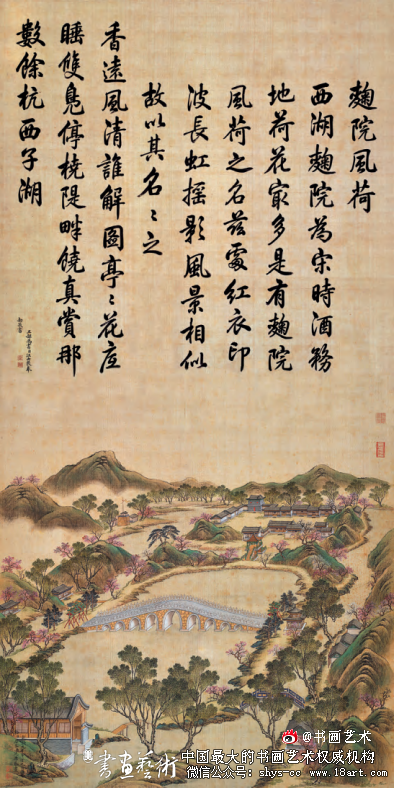 麴院風荷
西湖麴院為宋時酒務
地荷花㝡多是有麴院
風荷之名茲處紅衣印
波長虹搖影風景相似
故以其名〻之
香遠風清誰解圖亭〻花底
睡雙鳧停橈隄畔饒真賞那
數餘杭西子湖
@书画艺术
書畫藝術
中国最大的书画艺术权威机构
微信公众号：shys-cc www.18art.com